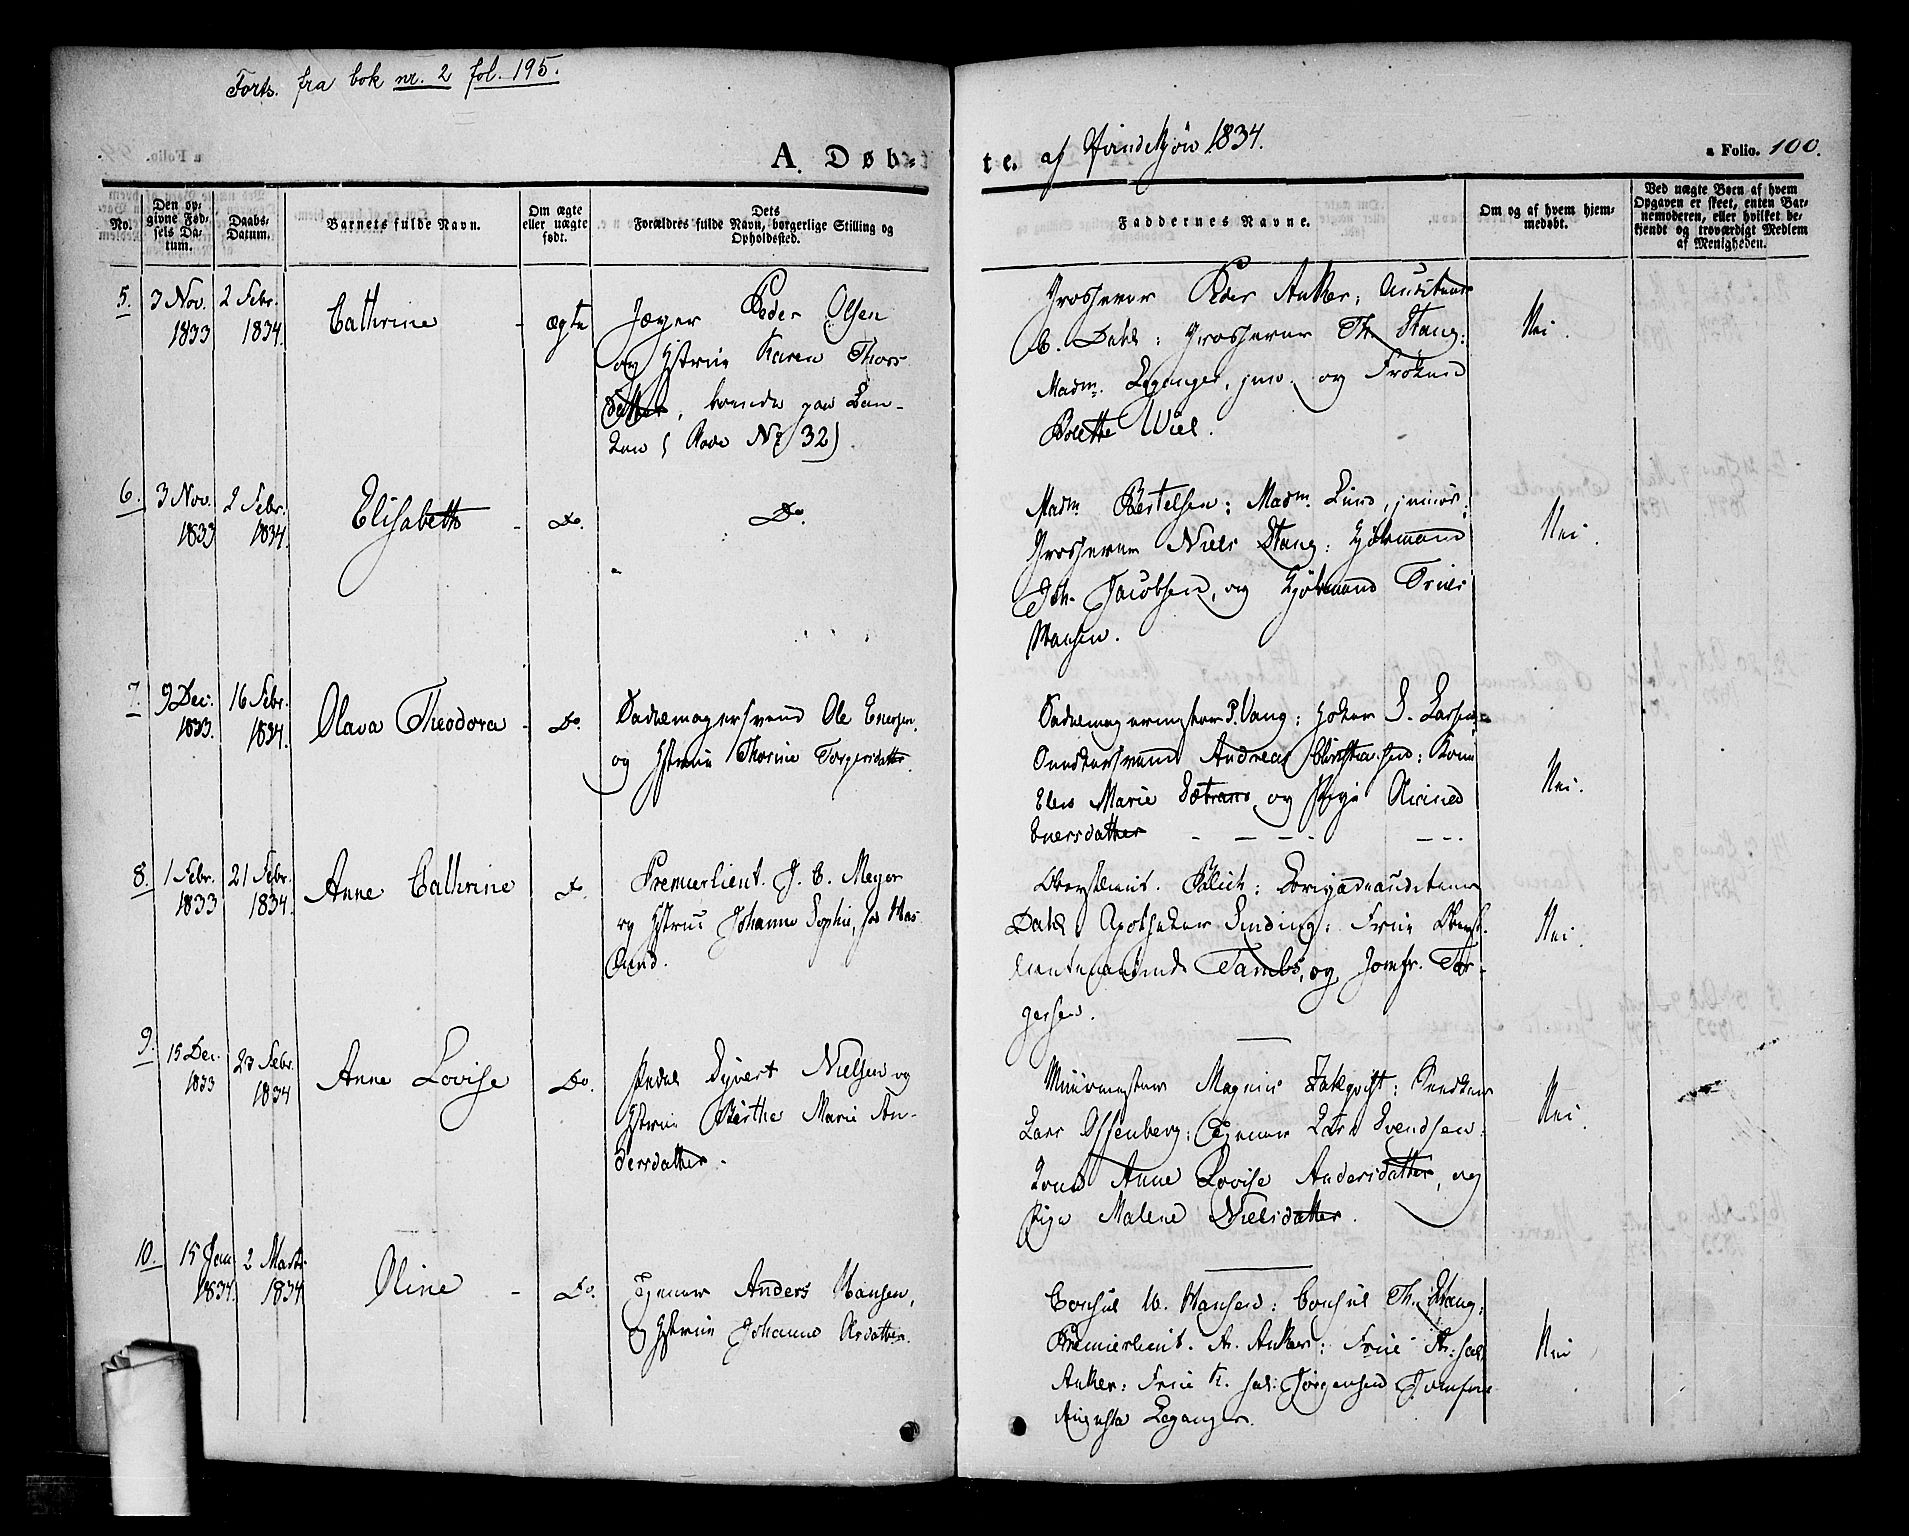 Forts. fra bok nr. 2 fol. 195.
A. Døb-
te. af Qvindekjön 1834.
a Folio. 100.
No.
Den op-
givne Fød-
sels Da-
tum.
Daabs-
Datum.
Barnets fulde Navn.
Om ægte
eller uægte
født.
Dets
Forældres fulde Navn, borgerlige Stilling og
Opholdssted.
Faddernes Navne.
Om og af hvem hjem-
medøbt.
Ved uægte Børn af hvem
Opgaven er skeet, enten Bar-
nemoderen, eller hvilket be-
kjendt og troværdigt Medlem
af Menigheden.
5. 3 Nov. 1833
2 Febr. 1834.
Cathrine
ægte
Jæger Peder Olsen
og Hstrue Karen Thors
datter, boende paa Ban-
ken (Rode No 32).
Grosserer Peder Anker; Auditeur
C. Dahl; Grosserer Th. Stang;
Madm. Leganger, jun. og Frøken
Bolette Wiel.
Nei.
6. 3 Nov. 1833
2 Febr. 1834.
Elisabeth
Do.
Do.
Madm. Bertelsen; Madm. Lund, junior;
Grosserer Niels Stang; Kjöbmand
Joh. Jacobsen, og Kjöbmand Truls
Hansen.
Nei.
7. 9 Dec. 1833.
16 Febr. 1834.
Olava Theodora
Do.
Sadelmagersvend Ole Enersen
og Hstrue Thorine Torgersdatter.
Sadelmagermester P. Vang; Høker S. Larsen;
Snedkersvend Andreas Christiansen; Kone
Elen Marie, og Pige
Enersdatter
Nei.
8. 1 Febr. 1833
21 Febr. 1834.
Anne Cathrine
Do.
Premierlieut. J. C. Meyer
og Hstrue Johanne Sophie, født Has
lund.
Oberstlieut. Bülich; Brigadeauditeur
Dahl, Apotheker Sinding; Frue Oberst-
lieutenantinde Tambs, og Jomfr. Tor-
gersen.
Nei.
9. 15 Dec. 1833
23 Febr. 1834
Anne Lovise
Do.
Pedel Syvert Nielsen og
Hstrue Birthe Marie An-
dersdatter.
Muurmester Magnus; Snedker
Lars Ossenberg; Egener Lars Svendsen;
Kone Anne Lovise Andersdatter, og
Pige Malene Nielsdatter.
Nei.
10. 15 Jan. 1834.
2 Marts. 1834
Oline
Do.
Egener Anders Hansen,
og Hstrue Johanne Olsdatter.
Consul M. Hansen; Consul Th. Stang;
Premierlieut. A. Anker; Frue
Anker; Frue K. sal: Jörgensen Jomfrue
Augusta Leganger.
Nei